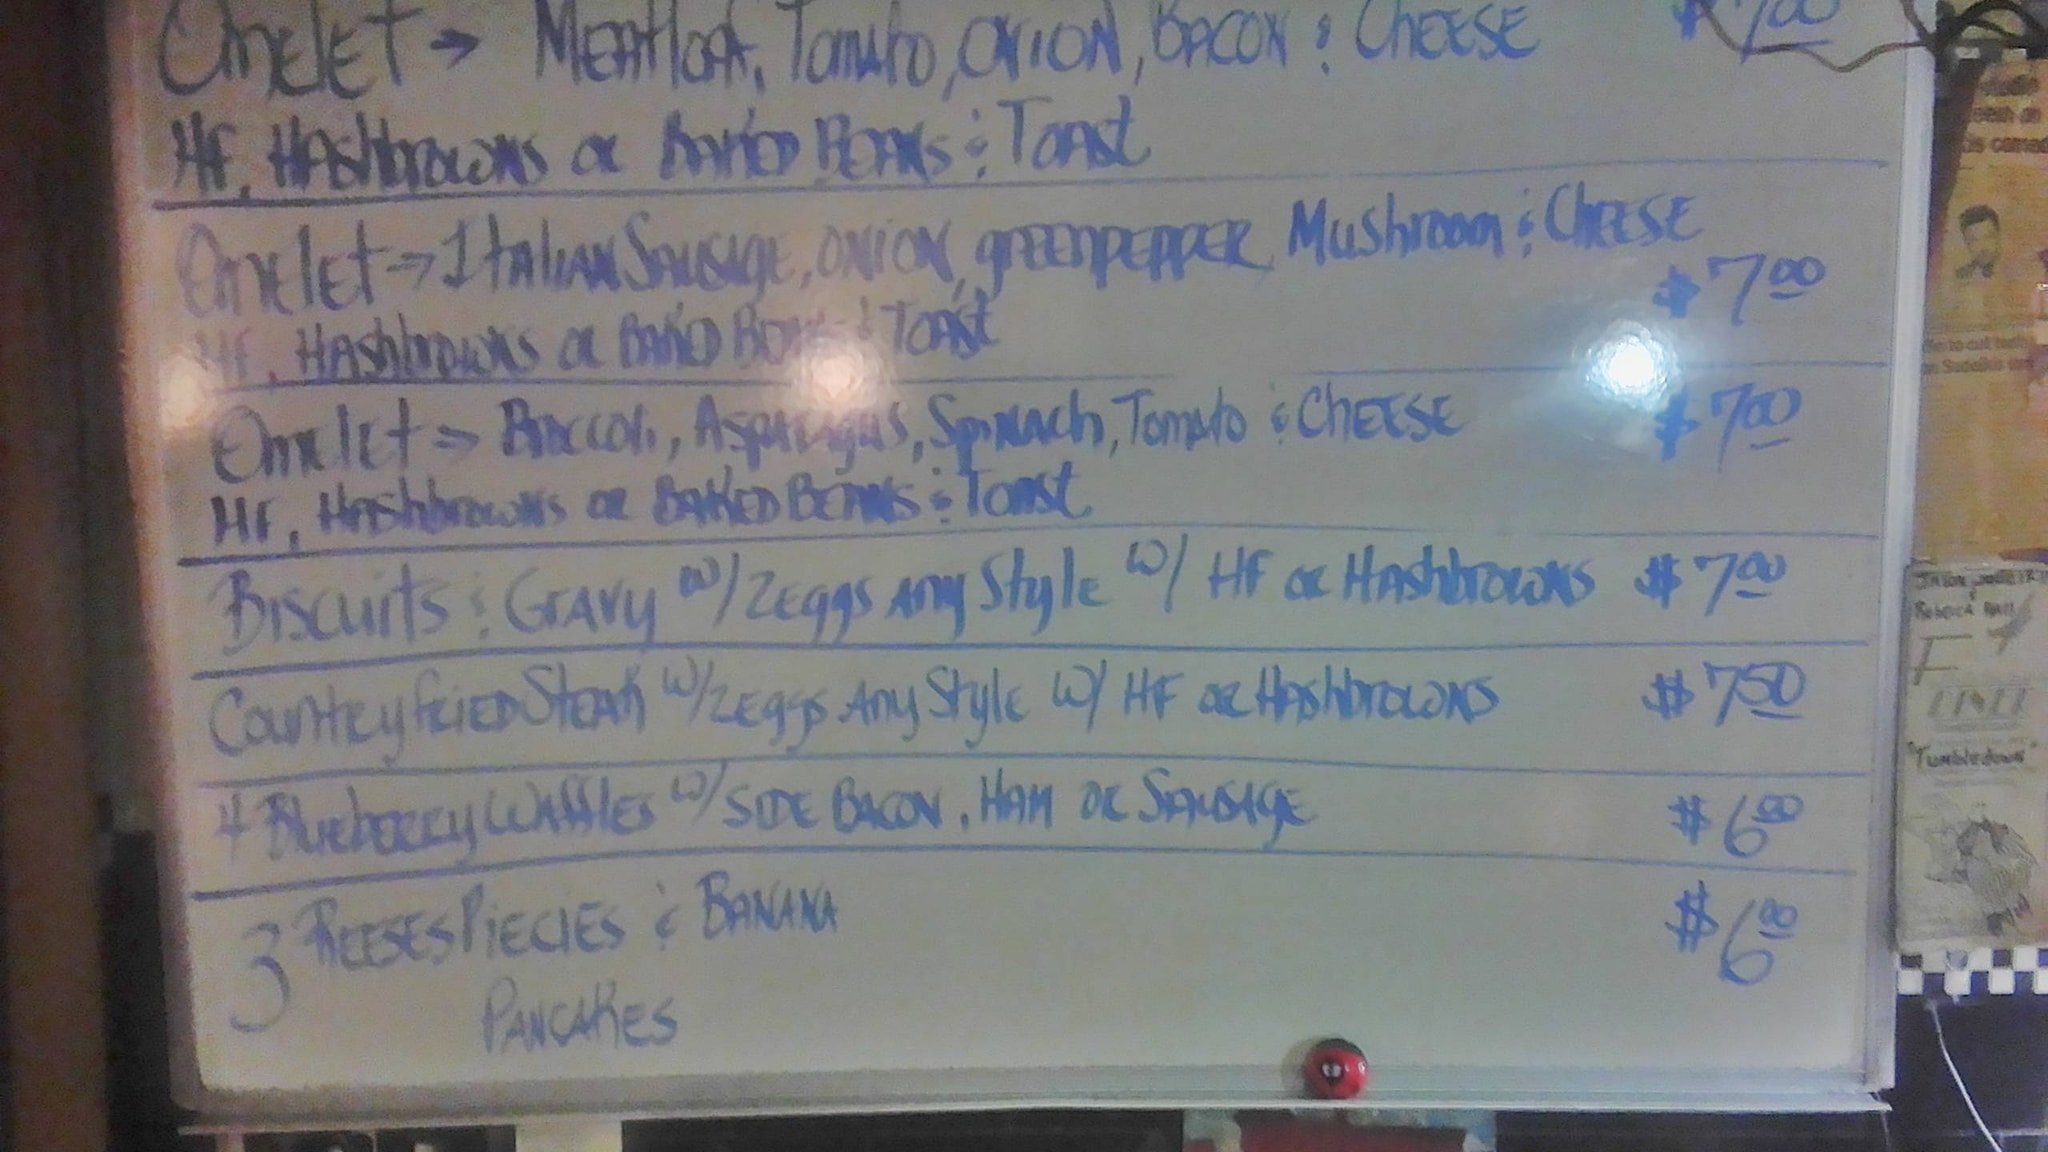 Omelet → Meatloaf, Tomato, Onion, Bacon & Cheese $7.00
HF, Hashbrowns or Baked Beans & Toast
Omelet → 1 Italian Sausage, Onion, greenpepper Mushroom & Cheese
$7.00
HF, Hashbrowns or Baked Beans & Toast
Omelet → Broccoli, Asparagus, Spinach, Tomato & Cheese $7.00
HF, Hashbrowns or Baked Beans & Toast
Biscuits & Gravy w/ 2 eggs Any Style w/ HF or Hashbrowns $7.00
Country fried Steak w/ 2 eggs Any Style w/ HF or Hashbrowns $7.50
4 Blueberry Waffles w/ Side Bacon, Ham or Sausage $6.00
3 Reeses Piecies & Banana $6.00
Pancakes
"Tumbledown"